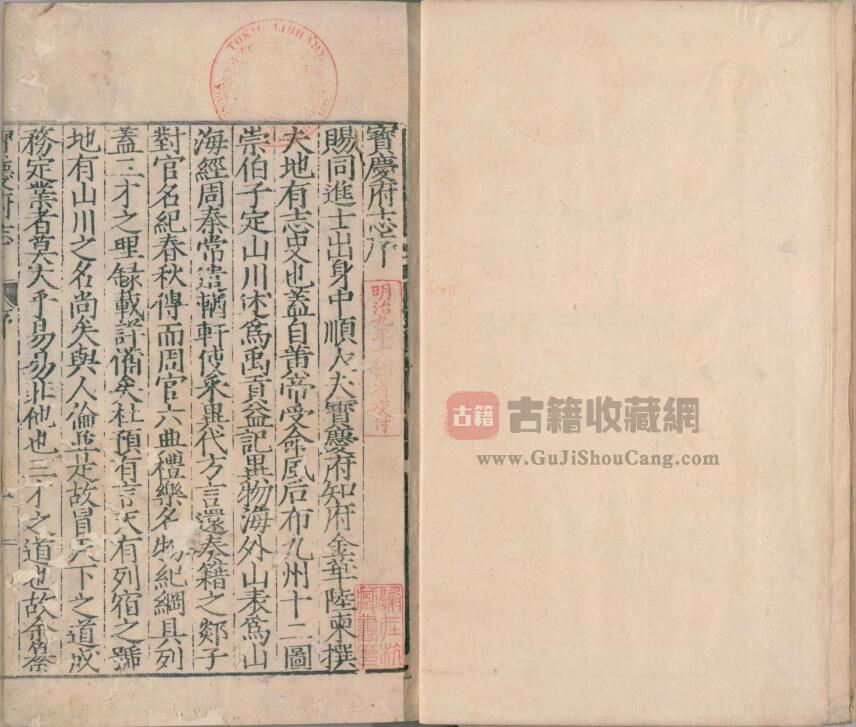 寳慶府志序
賜同進士出身中順大夫寳慶府知府金華陸柬撰
夫地有志史也蓋自黄帝受命風后布九州十二圖
崇伯子定山川述爲禹貢益記異物海外山表爲山
海經周秦常遣輶軒使采異代方言還奏籍之郯子
對官名紀春秋傳而周官六典禮樂名物紀綱具列
蓋三才之理録載詳備矣杜預有言天有列宿之號
地有山川之名尚矣與人倫並是故冒天下之道成
務定業者莫大乎易易非他也三才之道也故余嘗
寳慶府志
序
一
TOKIO LIBRARY
明治九年文部省交付
古籍
古籍收藏網
www.GuJiShouCang.com